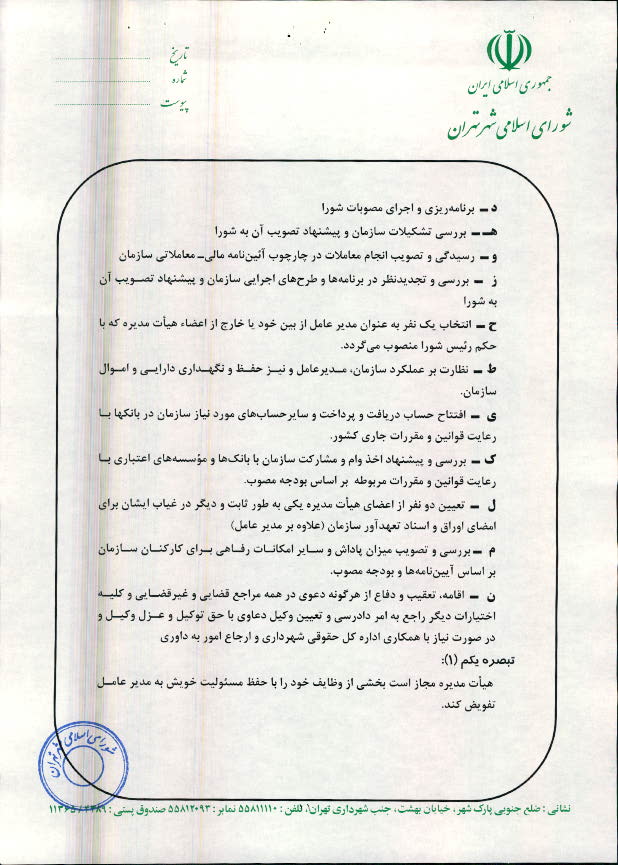 جمهوری اسلامی ایران
شورای اسلامی شهر تهران
تاریخ
شماره
پیوست
د ـ برنامه‌ریزی و اجرای مصوبات شورا
هـ ـ بررسی تشکیلات سازمان و پیشنهاد تصویب آن به شورا
و ـ رسیدگی و تصویب انجام معاملات در چارچوب آئین‌نامه مالی ـ معاملاتی سازمان
ز ـ بررسی و تجدیدنظر در برنامه‌ها و طرح‌های اجرایی سازمان و پیشنهاد تصویب آن
به شورا
ح ـ انتخاب یک نفر به عنوان مدیر عامل از بین خود یا خارج از اعضاء هیأت مدیره که با
حکم رئیس شورا منصوب می‌گردد.
ط ـ نظارت بر عملکرد سازمان، مدیرعامل و نیز حفظ و نگهداری دارایی و اموال
سازمان.
ی ـ افتتاح حساب دریافت و پرداخت و سایرحساب‌های مورد نیاز سازمان در بانکها با
رعایت قوانین و مقررات جاری کشور.
ک ـ بررسی و پیشنهاد اخذ وام و مشارکت سازمان با بانک‌ها و مؤسسه‌های اعتباری با
رعایت قوانین و مقررات مربوطه بر اساس بودجه مصوب.
ل ـ تعیین دو نفر از اعضای هیأت مدیره یکی به طور ثابت و دیگر در غیاب ایشان برای
امضای اوراق و اسناد تعهدآور سازمان (علاوه بر مدیر عامل)
م ـ بررسی و تصویب میزان پاداش و سایر امکانات رفاهی برای کارکنان سازمان
بر اساس آیین‌نامه‌ها و بودجه مصوب.
ن ـ اقامه، تعقیب و دفاع از هرگونه دعوی در همه مراجع قضایی و غیرقضایی و کلیه
اختیارات دیگر راجع به امر دادرسی و تعیین وکیل دعاوی با حق توکیل و عزل وکیل و
در صورت نیاز با همکاری اداره کل حقوقی شهرداری و ارجاع امور به داوری
تبصره یکم (۱):
هیأت مدیره مجاز است بخشی از وظایف خود را با حفظ مسئولیت خویش به مدیر عامل
تفویض کند.
شورای اسلامی شهر تهران
نشانی : ضلع جنوبی پارک شهر، خیابان بهشت، جنب شهرداری تهران، تلفن : ۵۵۸۱۱۱۱۰ نمابر : ۵۵۸۱۲۰۹۳ صندوق پستی : ۴۳۸۹ / ۱۱۳۶۵